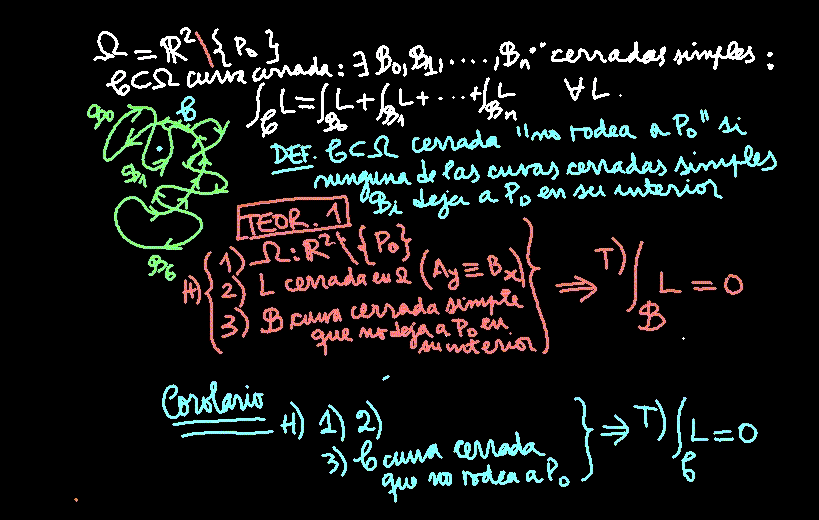 Ω = ℝ² \ {P₀}
𝒞 ⊂ Ω curva cerrada : ∃ ℬ₀, ℬ₁, ....., ℬₙ cerradas simples :
∫_𝒞 L = ∫_ℬ₀ L + ∫_ℬ₁ L + ... + ∫_ℬₙ L ∀ L.
𝒞
ℬ₀
ℬ₁
DEF. 𝒞 ⊂ Ω cerrada "no rodea a P₀" si
ninguna de las curvas cerradas simples
ℬᵢ deja a P₀ en su interior
TEOR. 1
H) { 1) Ω : ℝ² \ {P₀}
2) L cerrada en Ω (Ay ≡ Bx)
3) ℬ curva cerrada simple
que no deja a P₀ en
su interior } ⇒ T) ∫_ℬ L = 0
Corolario H) 1) 2)
3) 𝒞 curva cerrada
que no rodea a P₀ } ⇒ T) ∫_𝒞 L = 0